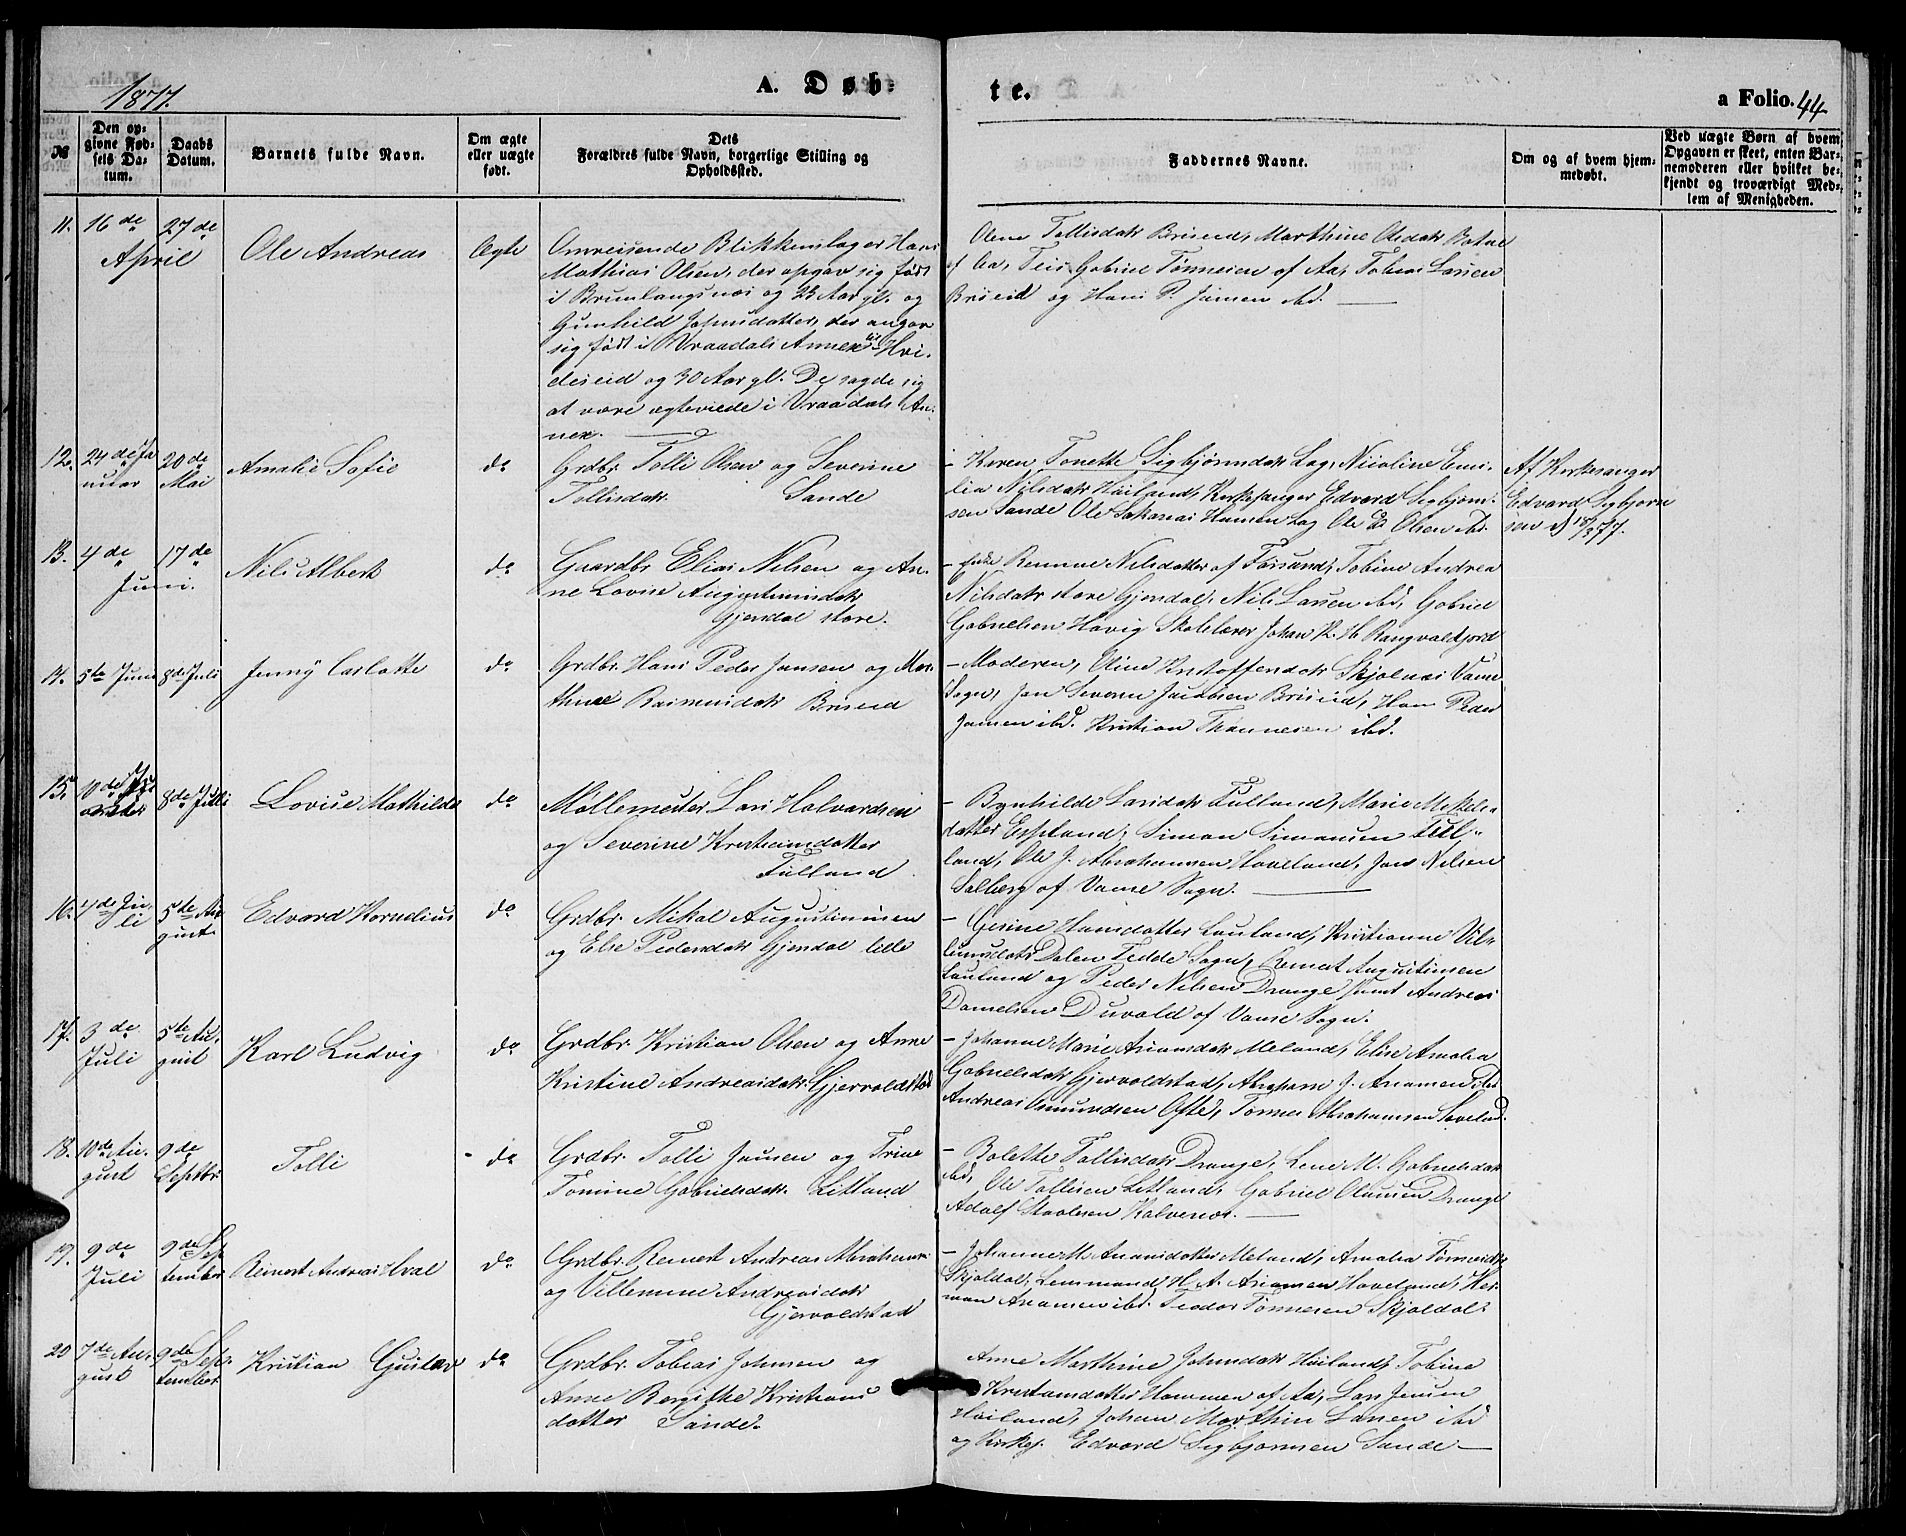 1877.
A. Døb-
te.
a Folio. 44
№
Den op-
givne Fød-
sels Da-
tum.
Daabs
Datum.
Barnets fulde Navn.
Om ægte
eller uægte
født.
Dets
Forældres fulde Navn, borgerlige Stilling og
Opholdssted.
Faddernes Navne.
Om og af hvem hjem-
medøbt.
Ved uægte Børn af hvem
Opgaven er skeet, enten Bar-
nemoderen eller hvilket be-
kjendt og troværdigt Med-
lem af Menigheden.
11. 16de 27de
April
Ole Andreas
Ægte
Omreisende Blikkenslager Hans
Mathias Olsen, der opgav sig født
i Brunlangsnæs og 23 Aar gl. og
Gunhild Johnsdatter, der angav
sig født i Vraadals Annex til Hvi-
deseid og 30 Aar gl. De sagde sig
at være ægteviede i Vraadals An-
nex.
Olene Tollisdatr Briseid, Marthine Olsdatr Botne
af Aa, Teis Gabriel Tønnesen af Aa, Tobias Larsen
Briseid og Hans P. Jansen ibd.
12. 24de Ja
nuar
20de
Mai
Amalie Sofie
do
Grdbr. Tolli Olsen og Severine
Tollisdatr. Sande
- Karen Tonette Sigbjørnsdatr Lag, Nicoline Emi-
lia Nilsdatr Høiland, Kirkesanger Edvard Sigbjørn-
sen Sande Ole Sakarias Hansen Lag Ole Olsen ibd.
Af Kirkesanger
Edvard Sigbjørn
sen d 18/3 77.
13. 4de 17de
Juni.
Nils Albert
do
Gaardbr Elias Nilsen og An-
ne Lovise Augustinusdatr
Gjendal store.
- Enke Nilsdatter af Førsund, Tobine Andrea
Nilsdatr store Gjendal, Nils Larsen ibd, Gabriel
Gabrielsen Havig Skolelærer Johan K. H. Rangvaldfjord
14. 5te Juni 8de Juli
Jenny Carlotte
do
Grdbr. Hans Peder Jansen og Mar-
thine Rasmusdatr Briseid
- Moderen, Eline Kristoffersdatr Skjolnæs Vanse
Sogn, Jan Severin Jacobsen Briseid, Hans Peder
Jansen ibd. Kristian Thønnesen ibd.
15. 10de
8de Juli
Lovise Mathilde
do
Møllemester Lars Halvardsen
og Severine Kristiansdatter
Tulland.
- Bynhilde Larsdatr Tulland, Marie Mikkels-
datter Espeland, Simon Simonsen Tul-
land, Ole J. Abrahamsen Haveland, Jens Nilsen
Salberg af Vanse Sogn.
16. 4de Ju-
li
5te Au
gust.
Edvard Kornelius
do
Grdbr. Mikal Augustinusen
og Else Pedersdatr Gjendal lille
- Gesine Hansdatter Lauland, Kristianne Vil-
lumsdatr Dalen Fedde Sogn, Reinert Augustinusen
Lauland og Peder Nilsen Drange samt Andreas
Danielsen Duvold af Vanse Sogn.
17. 3de
Juli
5te Au-
gust
Karl Ludvig
do
Grdbr. Kristian Olsen og Anne
Kristine Andreasdatr Gjervoldstad
- Johanne Marie Anansdatr Meland, Elise Amalia
Gabrielsdatr Gjervoldstad, Abraham J. Anansen ibd
Andreas Osmundsen Ofte, Tønnes Abrahamsen Haveland.
18. 10de Au-
gust
9de
Septbr.
Tolli
do
Grdbr. Tolli Jansen og Trine
Tomine Gabrielsdatr. Litland
- Bolette Tollisdatr Drange, Lene M. Gabrielsdatr
ibd, Ole Tollisen Litland, Gabriel Olausen Drange
Adolf Staalesen Kalvenes.
19. 9de
Juli
9de Sep
tember
Reinert Andreas Hval
do
Grdbr. Reinert Andreas Abrahams.
og Villemine Andreasdatr
Gjervoldstad
- Johanne M. Anansdatter Meland, Amalia Tønnesdtr
Skjoldal, Lensmand H. A. Anansen Haveland, Her-
man Anansen ibd. Teodor Tønnesen Skjoldal
20 7de Au-
gust
9de Sep-
tember
Kristian Gustav
do
Grdbr. Tobias Johnsen og
Anne Bergitte Kristians
datter Sande.
Anne Marthine Johnsdatr Høiland, Tobine
Kristiansdatter Hammen af Aa, Lars Jensen
Høiland, Johan Marthin Larsen ibd
og Kirkes. Edvard Sigbjørnsen Sande